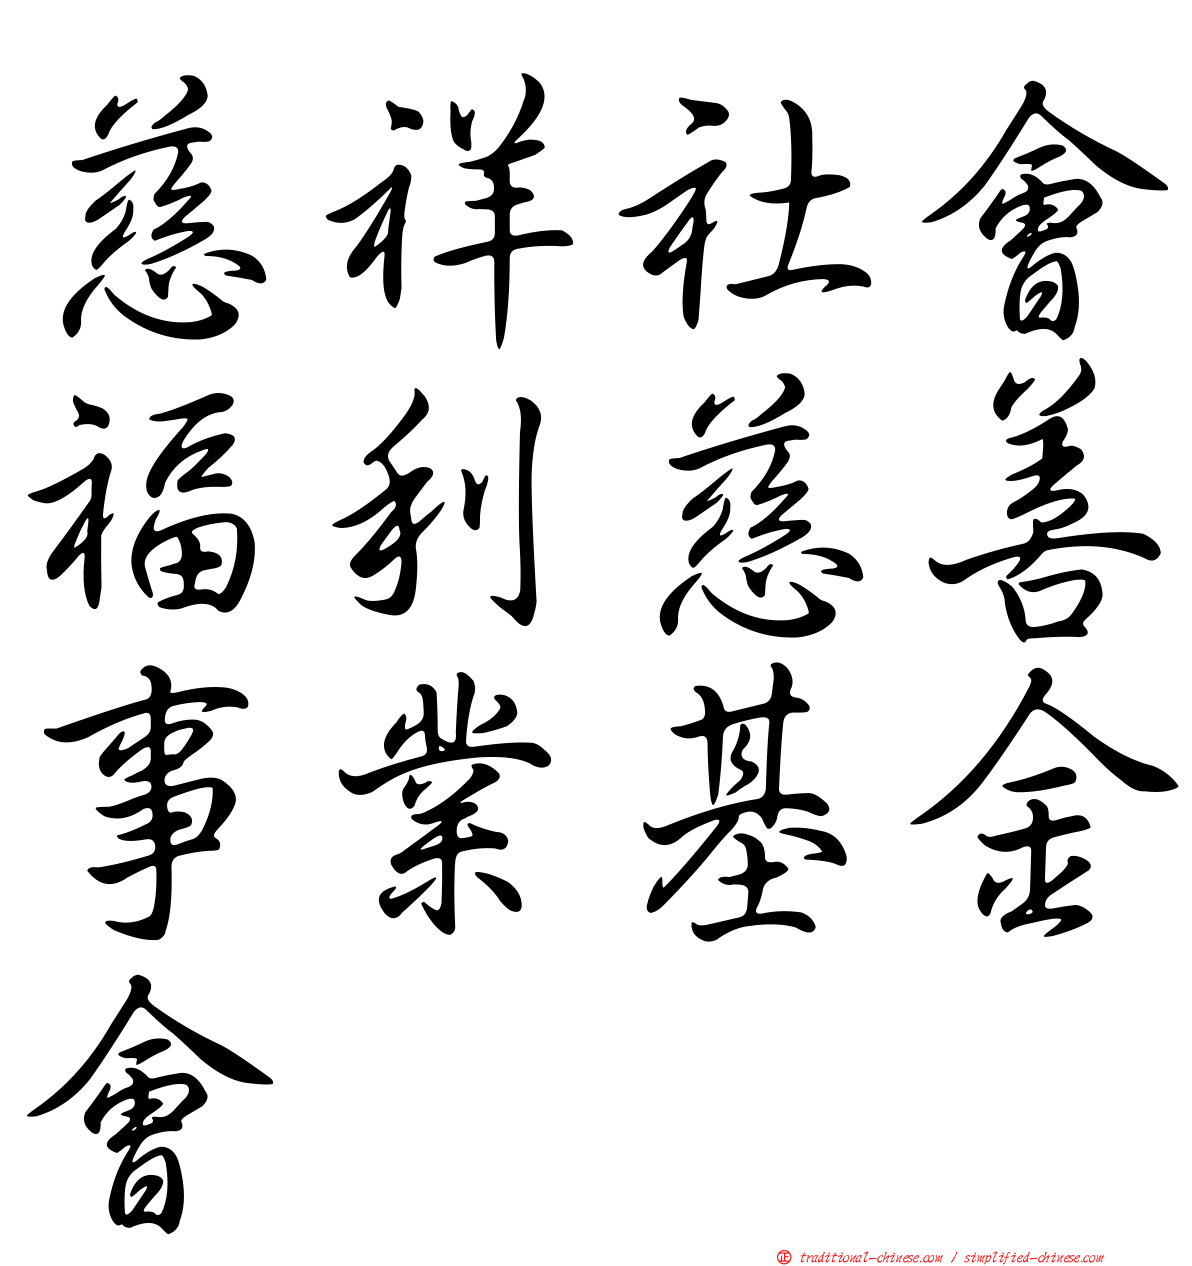 慈祥社會
福利慈善
事業基金
會
㊣ traditional-chinese.com / simplified-chinese.com